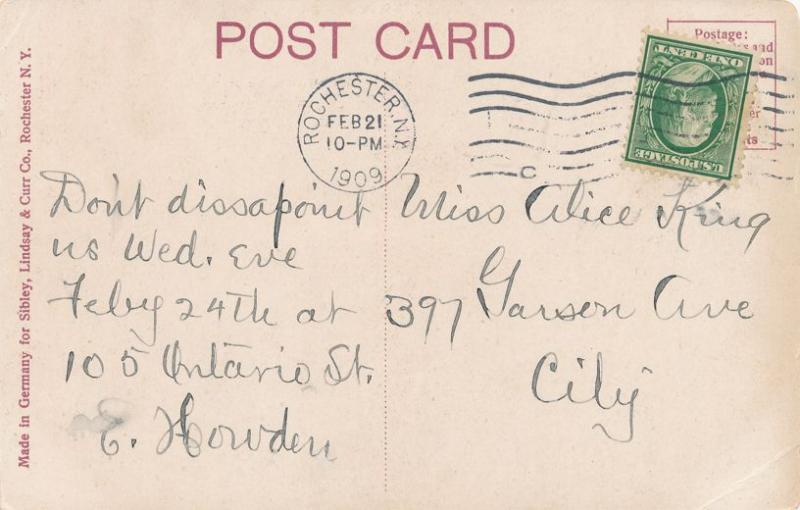 POST CARD
Made in Germany for Sibley, Lindsay & Curr Co., Rochester N. Y.
Postage:
and
on
er
ts
ONE CENT
U.S. POSTAGE
ROCHESTER, N.Y.
FEB 21
10-PM
1909
C
Dont dissapoint
us Wed. Eve
Feby 24th at
105 Ontario St.
E. Howden
Miss Alice King
397 Garson Ave
City